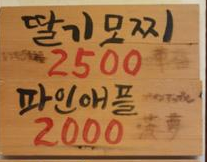 딸기모찌
2500
파인애플
2000